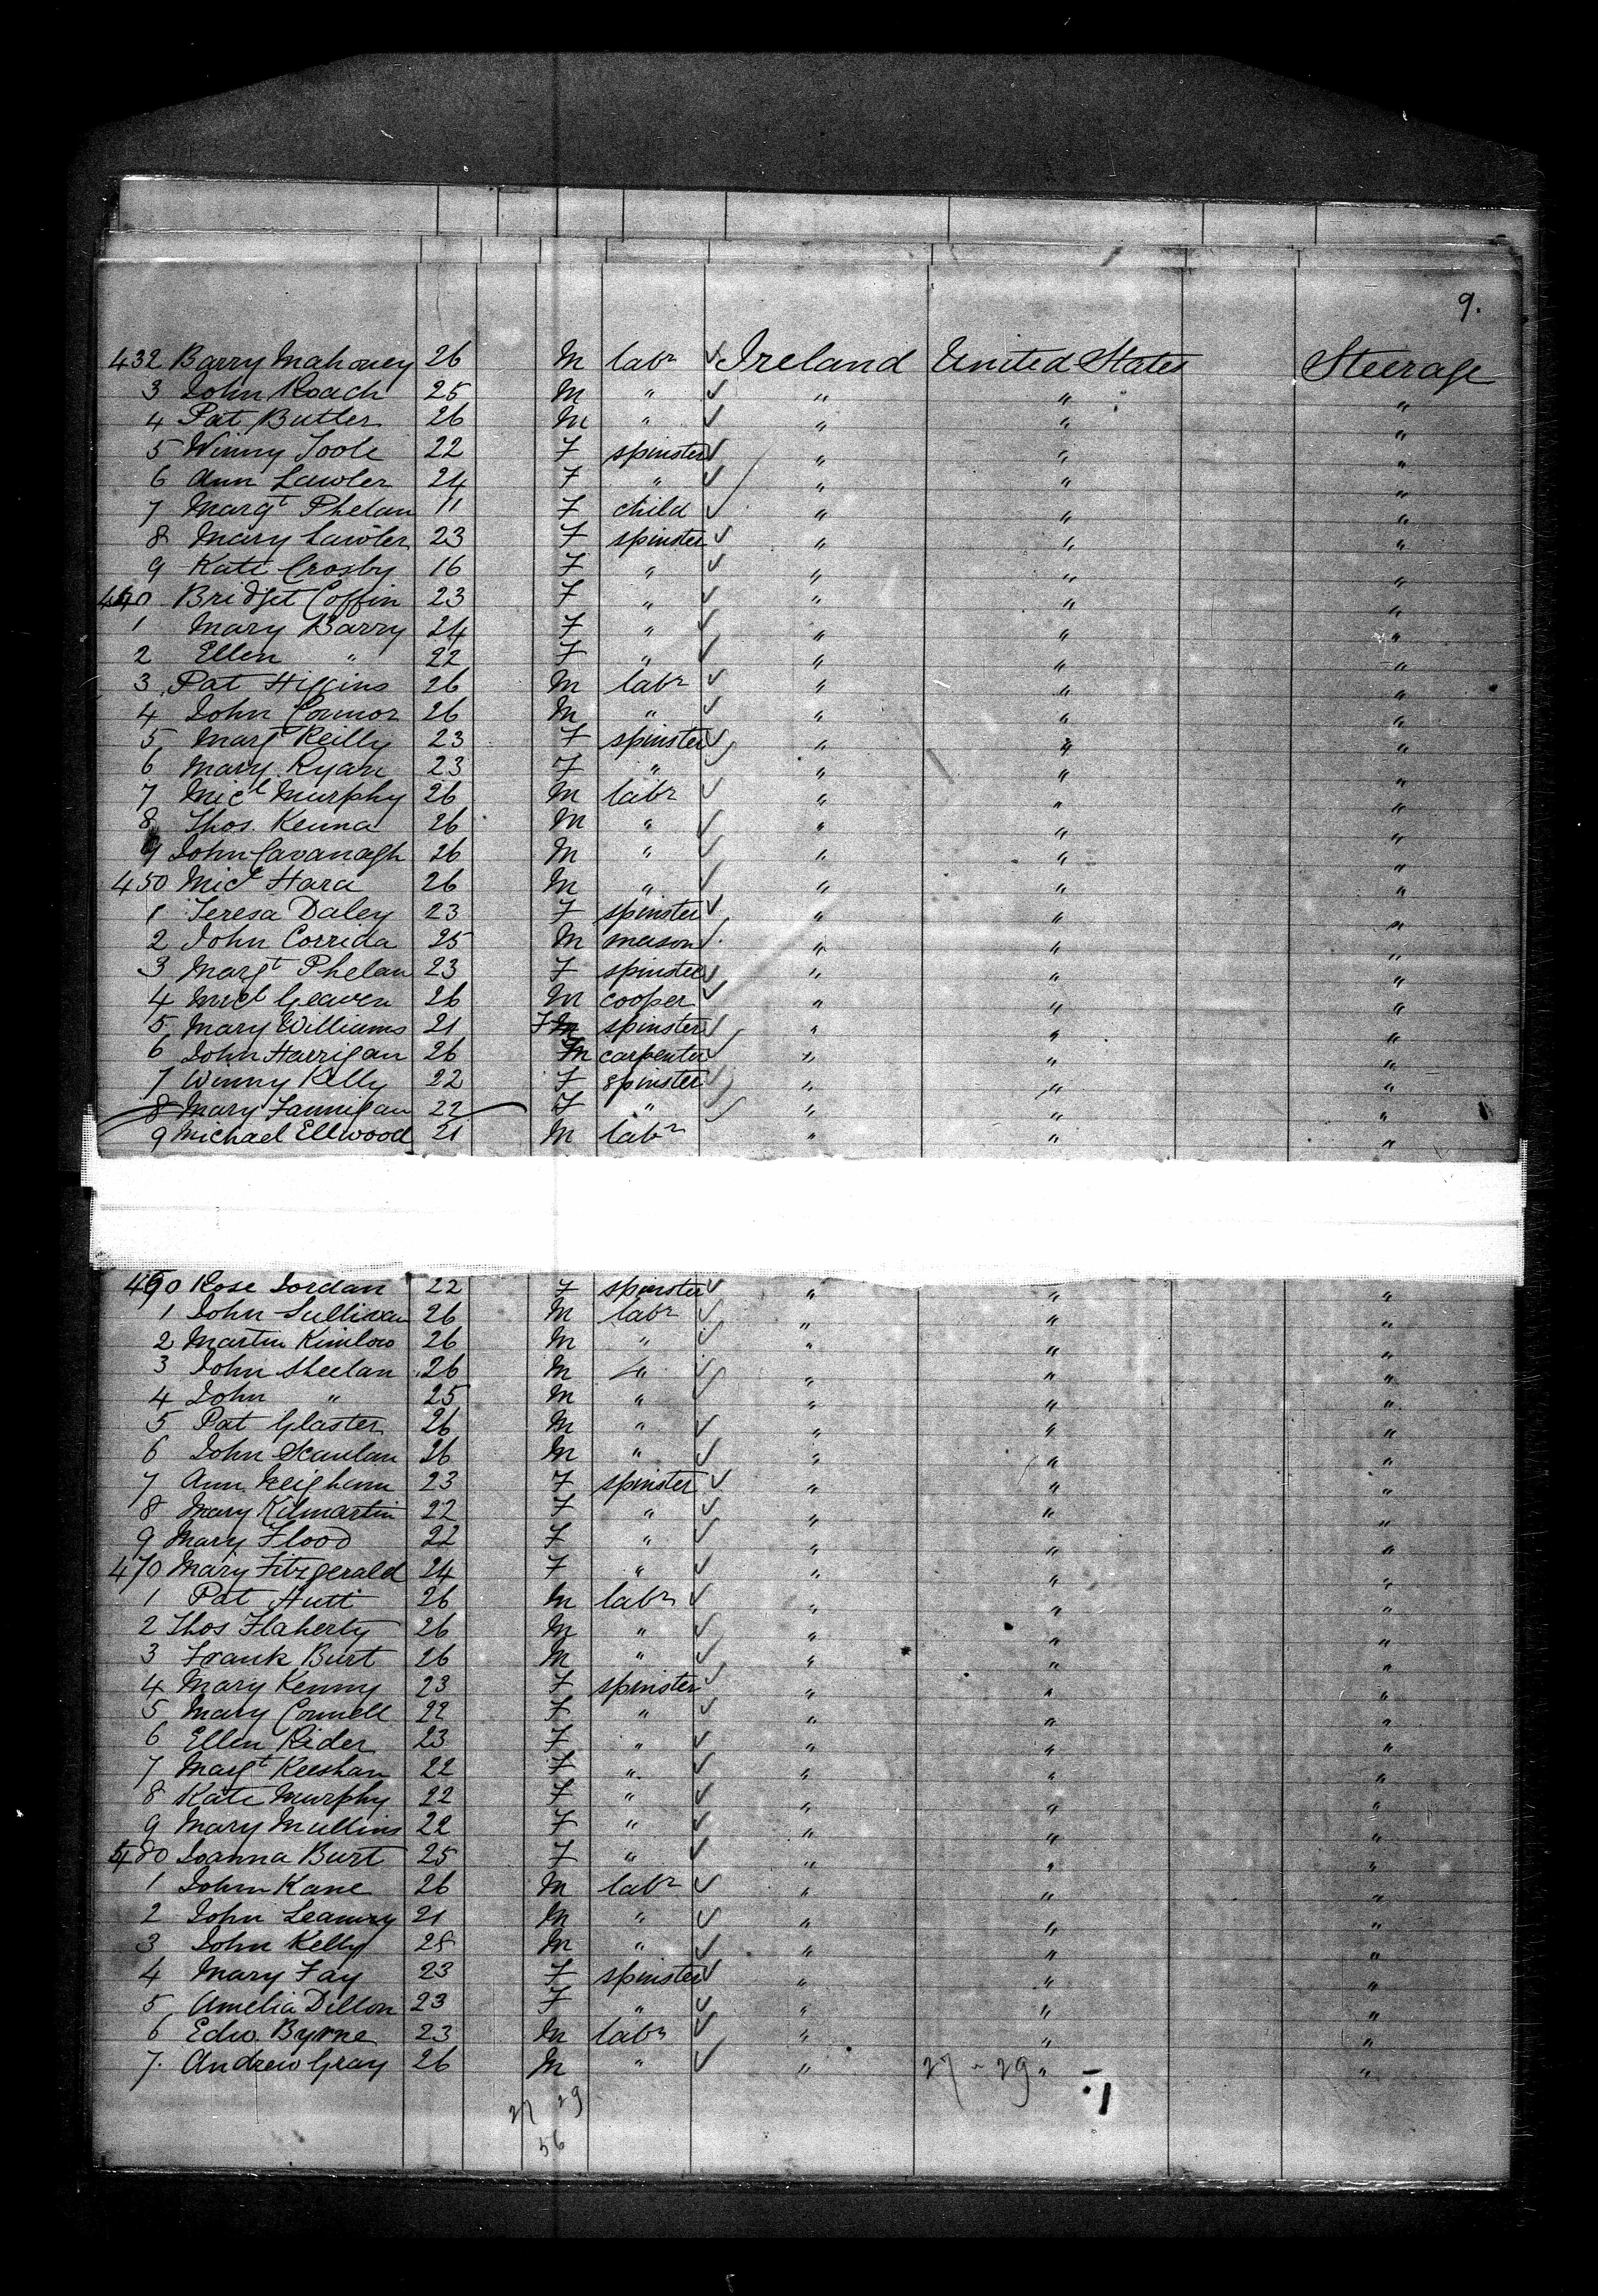 9.
432 Barry Mahoney 26 M labr ✓ Ireland United States Steerage
3 John Roach 25 M " ✓ " " "
4 Pat Butler 26 M " ✓ " " "
5 Winny Toole 22 F spinster ✓ " " "
6 Ann Lawler 24 F " ✓ " " "
7 Margt Phelan 11 F child ✓ " " "
8 Mary Lawler 23 F spinster ✓ " " "
9 Kate Crosby 16 F " ✓ " " "
440 Bridget Coffin 23 F " ✓ " " "
1 Mary Barry 24 F " ✓ " " "
2 Ellen " 22 F " ✓ " " "
3 Pat Higgins 26 M labr ✓ " " "
4 John Connor 26 M " ✓ " " "
5 Margt Reilly 23 F spinster ✓ " " "
6 Mary Ryan 23 F " ✓ " " "
7 Micl Murphy 26 M labr ✓ " " "
8 Thos. Kenna 26 M " ✓ " " "
9 John Cavanagh 26 M " ✓ " " "
450 Micl Hara 26 M " ✓ " " "
1 Teresa Daley 23 F spinster ✓ " " "
2 John Corrida 25 M mason ✓ " " "
3 Margt Phelan 23 F spinster ✓ " " "
4 Micl Geaven 26 M cooper ✓ " " "
5 Mary Williams 21 F spinster ✓ " " "
6 John Harrigan 26 M carpenter ✓ " " "
7 Winny Kelly 22 F spinster ✓ " " "
8 Mary Fannigan 22 F " ✓ " " "
9 Michael Ellwood 21 M labr " " "
460 Rose Jordan 22 F spinster ✓ " " "
1 John Sullivan 26 M labr ✓ " " "
2 Martin Kinlow 26 M " ✓ " " "
3 John Sheelan 26 M " ✓ " " "
4 John " 25 M " ✓ " " "
5 Pat Glaster 26 M " ✓ " " "
6 John Scanlan 26 M " ✓ " " "
7 Ann 23 F spinster ✓ " " "
8 Mary Kilmartin 22 F " ✓ " " "
9 Mary Flood 22 F " ✓ " " "
470 Mary Fitzgerald 24 F " ✓ " " "
1 Pat Hutt 26 M labr ✓ " " "
2 Thos Flaherty 26 M " ✓ " " "
3 Frank Burt 26 M " ✓ " " "
4 Mary Kenny 23 F spinster ✓ " " "
5 Mary Connell 22 F " ✓ " " "
6 Ellen Rider 23 F " ✓ " " "
7 Margt Keeshan 22 F " ✓ " " "
8 Kate Murphy 22 F " ✓ " " "
9 Mary Mullins 22 F " ✓ " " "
480 Joanna Burt 25 F " ✓ " " "
1 John Kane 26 M labr ✓ " " "
2 John 21 M " ✓ " " "
3 John Kelly 25 M " ✓ " " "
4 Mary Fay 23 F spinster ✓ " " "
5 Amelia Dillon 23 F " ✓ " " "
6 Edw. Byrne 23 M labr ✓ " " "
7. Andrew Gray 26 M " ✓ " 27 - 29 " "
27 29
56